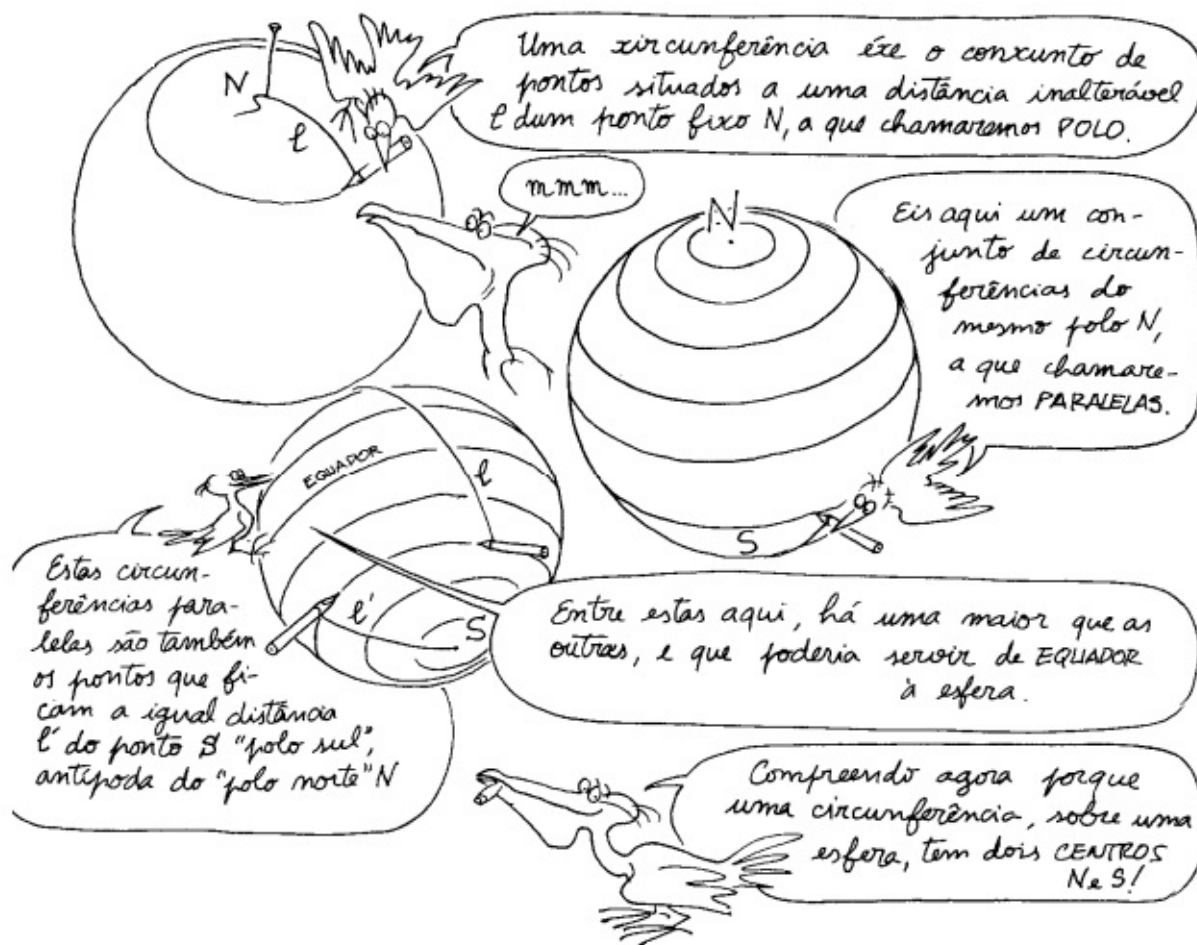 Uma xircunferência éxe o conxunto de
pontos situados a uma distância inalterável
l dum ponto fixo N, a que chamaremos POLO.
N
l
mmm...
N
Eis aqui um con-
junto de circun-
ferências do
mesmo polo N,
a que chamare-
mos PARALELAS.
S
EQUADOR
l
l'
S
Estas circun-
ferências para-
lelas são também
os pontos que fi-
cam a igual distância
l' do ponto S "polo sul",
antípoda do "polo norte" N
Entre estas aqui, há uma maior que as
outras, e que poderia servir de EQUADOR
à esfera.
Compreendo agora porque
uma circunferência, sobre uma
esfera, tem dois CENTROS
N e S!